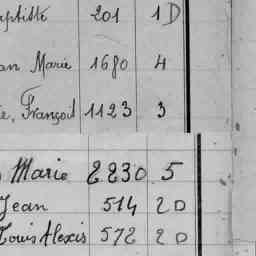 aptiste 201 1 D
an Marie 1680 4
e, François 1123 3
Marie 2230 5
Jean 514 2 D
Louis Alexis 572 2 D